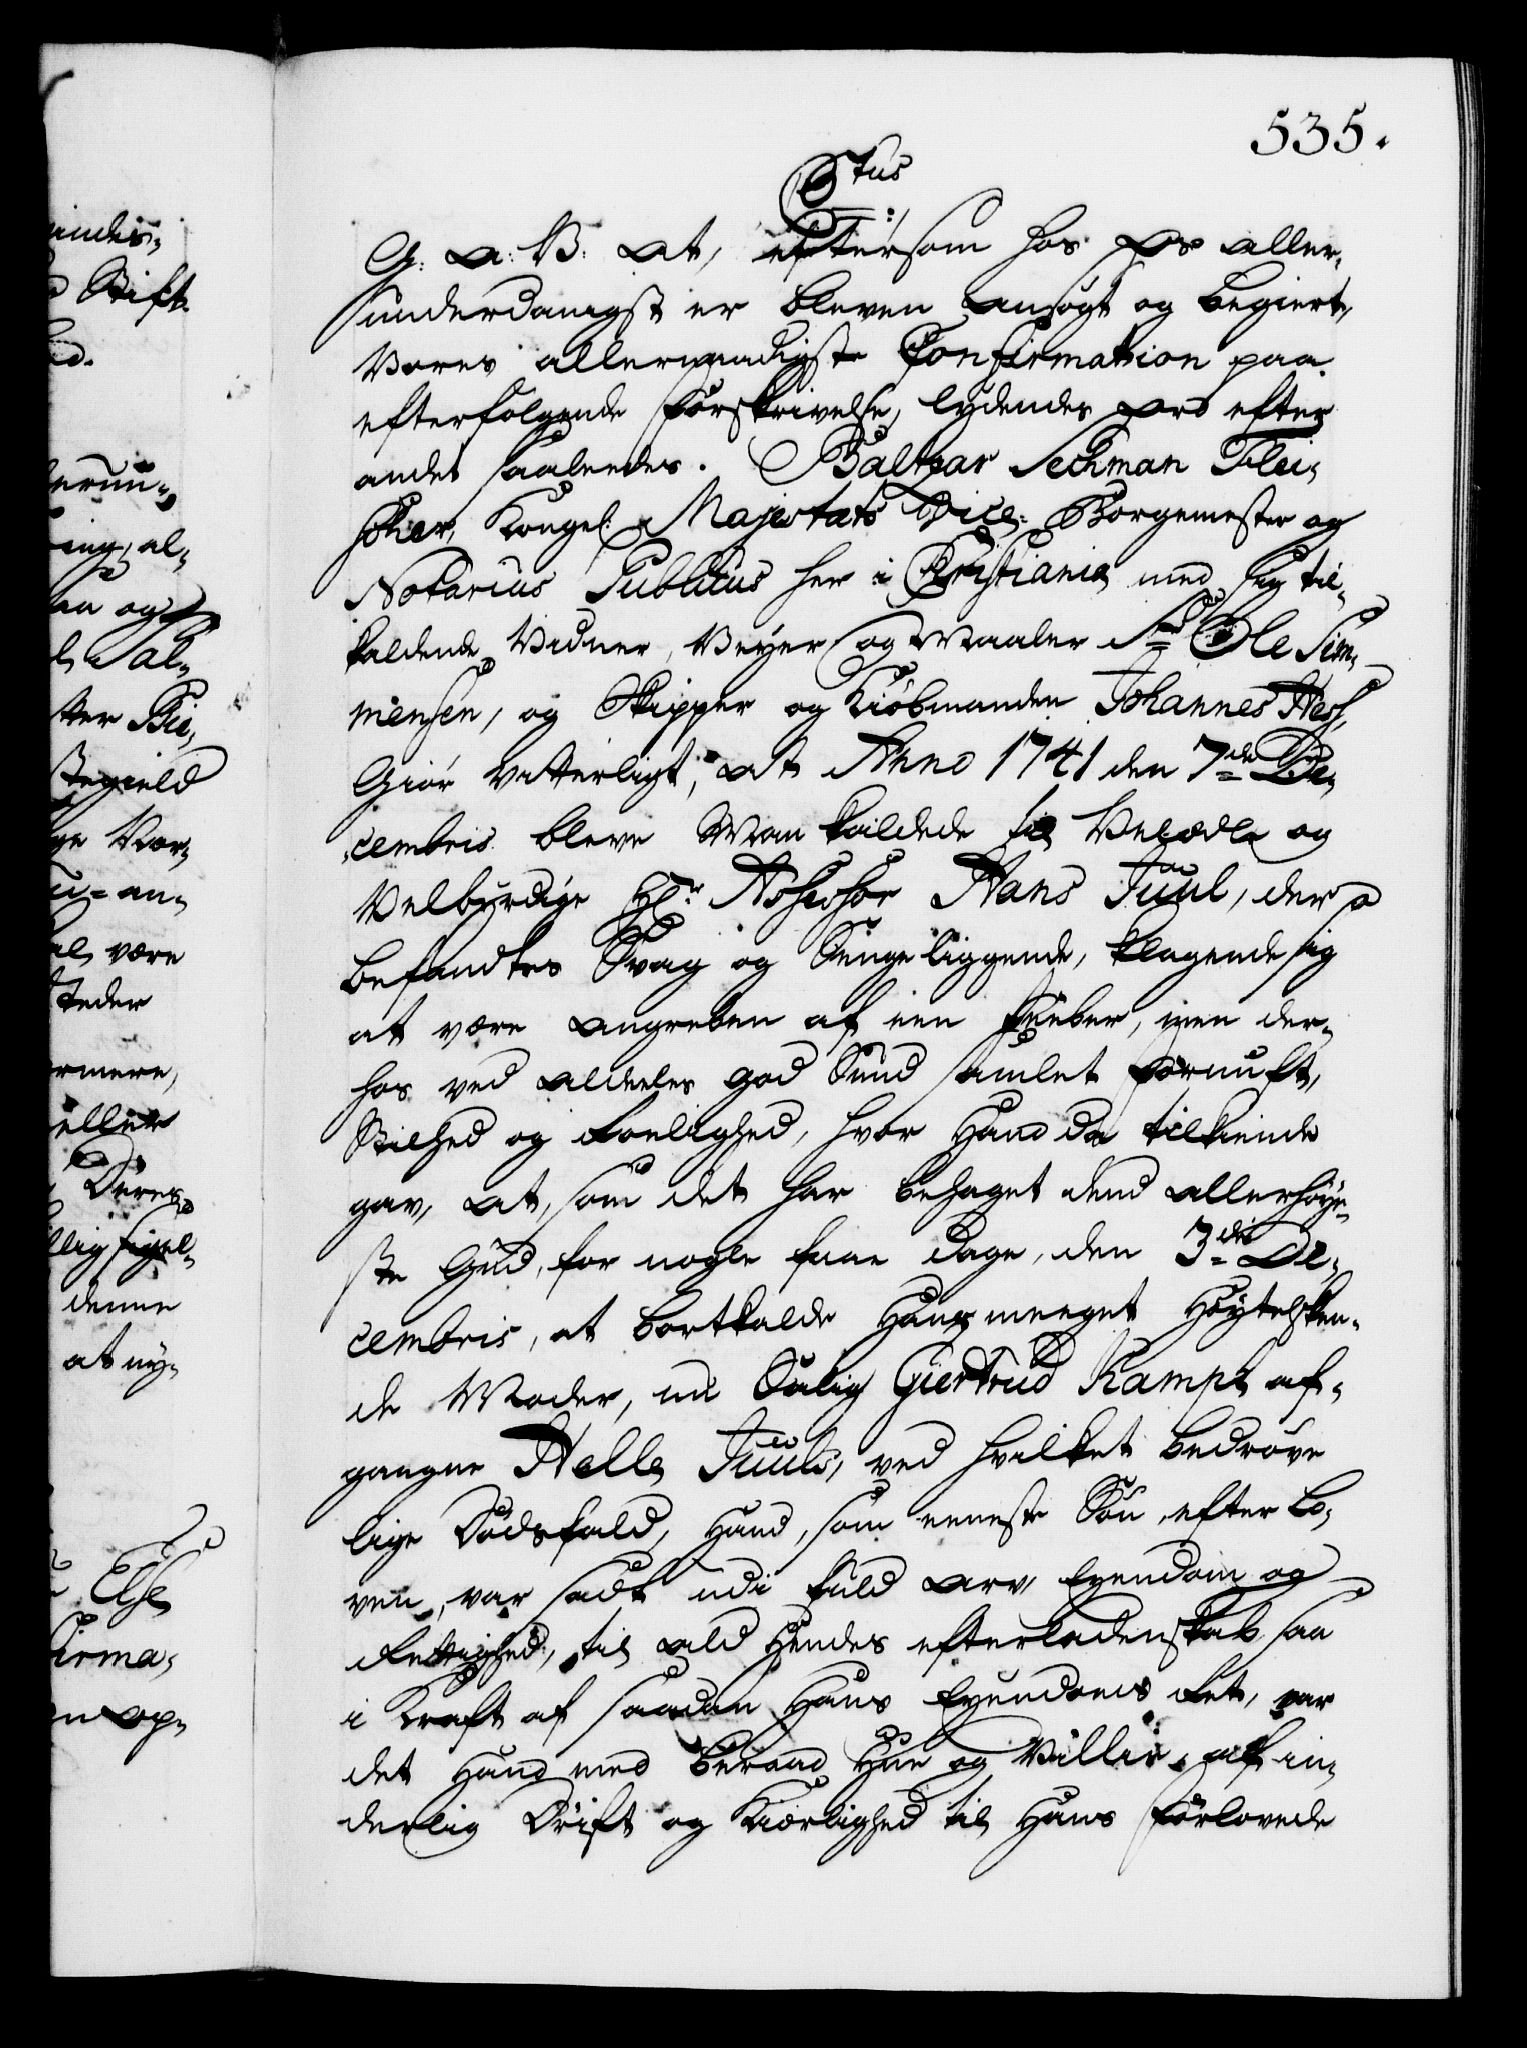 535.
Stus
G: A: V: At, eftersom hos Os aller,
underdanigst er bleven ansøgt og begiert,
Vores allernaadigste Confirmation paa
efterfølgende Forskrivelse, lydendes Ord efter
andet saaledes. Baltzar Sechman Flei,
scher, Kongel: Majestats Vice: Borgemester og
Notarius Publicus her i Christiania med sig til,
kaldende Vidner, Veyer og Maaler Sr Ole Sim,
mensen, og Skipper og Kiøbmanden Johannes Hess,
Giør vitterligt, at Anno 1741 den 7de De,
cembris bleve Man kaldede til Velædle og
Velbyrdige Hr. Assessor Hans Juul, der
befandtes Svag og Sengeliggende, klagende sig
at være angreben af een Feeber, men der,
hos ved aldeles god Sund samlet Fornuft,
Stilhed og Roelighed, hvor Hand da tilkiende
gav, at, som det har behaget dend allerhøye,
ste Gud, for nogle faae Dage, den 3die De,
cembris, at bortkalde Hans meeget Høytelsken,
de Moder, nu Salig Giertrud Kamph af,
gangne Helle Juuls, ved hvilket bedrøve
lige Dødsfald, Hand, som eeneste Søn, efter Lo,
ven, var sadt udi fuld Arv, Eyendom og
Rettighed, til ald Hendes efterladenskab, saa
i Kraft af saadan Hans Eyendoms Ret, var
det Hand med beraad Hue og Villie, af in,
derlig Drift og Kierlighed til Hans Forlovede